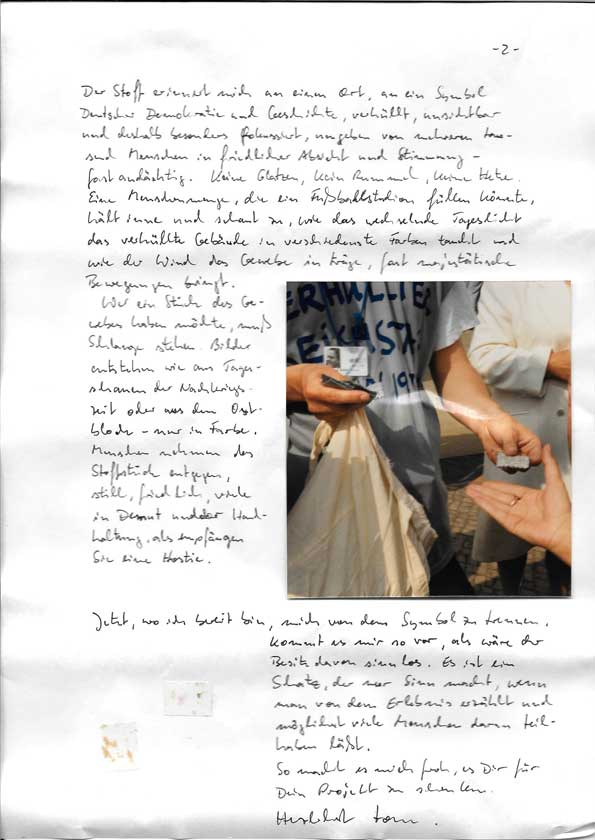 -2-
Der Stoff erinnert mich an einen Ort, an ein Symbol
Deutscher Demokratie und Geschichte, verhüllt, unsichtbar
und deshalb besonders fokussiert, umgeben von mehreren tau-
send Menschen in friedlicher Absicht und Stimmung -
fast andächtig. Keine Glatzen, kein Rummel, keine Hetze.
Eine Menschenmenge, die ein Fußballstadion füllen könnte,
hält inne und schaut zu, wie das wechselnde Tageslicht
das verhüllte Gebäude in verschiedenste Farben taucht und
wie der Wind das Gewebe in träge, fast majestätische
Bewegungen bringt.
Wer ein Stück des Ge-
webes haben möchte, muß
Schlange stehen. Bilder
entstehen wie aus Tages-
schauen der Nachkriegs-
zeit oder aus dem Ost-
block - nur in Farbe.
Menschen nehmen das
Stoffstück entgegen,
still, friedlich, viele
in Demut und der Hand-
haltung, als empfingen
Sie eine Hostie.
ERHÜLLTER
EICHSTA
Jetzt, wo ich bereit bin, mich von dem Symbol zu trennen,
kommt es mir so vor, als wäre der
Besitz davon sinnlos. Es ist ein
Schatz, der nur Sinn macht, wenn
man von dem Erlebnis erzählt und
möglichst viele Menschen daran teil-
haben läßt.
So macht es mich froh, es Dir für
Dein Projekt zu schenken.
Herzlichst